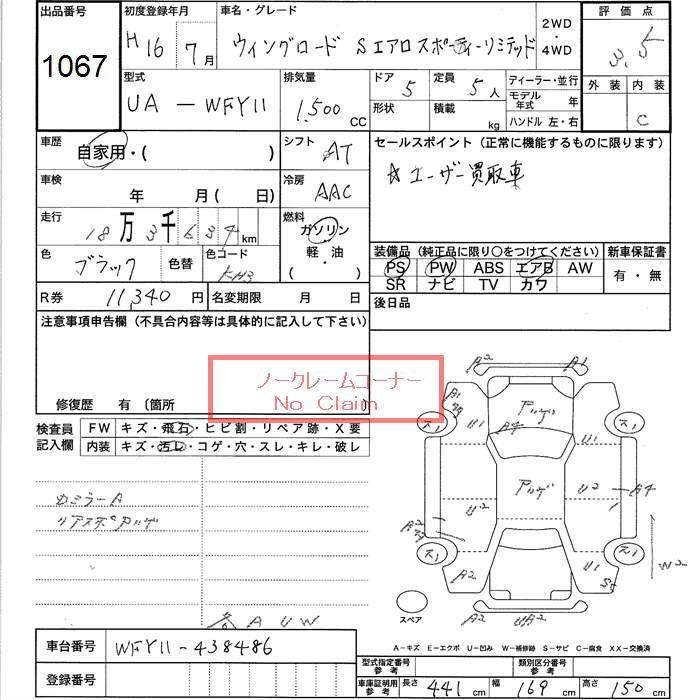 出品番号 初度登録年月 車名・グレード 2WD・4WD 評価点
1067 H16 7月 ウィングロード Sエアロスポーティーリミテッド 3.5
型式 排気量 ドア 定員 ディーラー・並行 外装 内装
UA-WFY11 1.500 CC 5 5人 モデル年式 年 C
形状 積載 kg ハンドル 左・右
車歴 自家用・( ) シフト AT セールスポイント (正常に機能するものに限ります)
☆ユーザー買取車
車検 年 月(日) 冷房 AAC
走行 18万3千634km 燃料 ガソリン 軽・油 ( ・ )
色 ブラック 色替 色コード KH3
装備品 (純正品に限り○をつけてください) 新車保証書
PS PW ABS エアB AW 有・無
SR ナビ TV カワ
R券 11,340円 名変期限 月 日 後日品
注意事項申告欄 (不具合内容等は具体的に記入して下さい)
ノークレームコーナー
No Claim
修復歴 有 〔箇所
検査員記入欄 FW キズ・飛石・ヒビ割・リペア跡・X要
内装 キズ・汚レ・コゲ・穴・スレ・キレ・破レ
カミラーA
リアスポアルゲ
各AUW
A2 A1
A1
アルゲ
ス1 A4 U1 U1 ス1
アルゲ U2 A4
U2
A2
ス1 U1 ス1
A2 W2
スペア UA2
A-キズ E-エクボ U-凹み W-補修跡 S-サビ C-腐食 XX-交換済
車台番号 WFY11-438486
登録番号
型式指定番号参考 類別区分番号参考
車庫証明用参考 長さ 441cm 幅 169cm 高さ 150cm